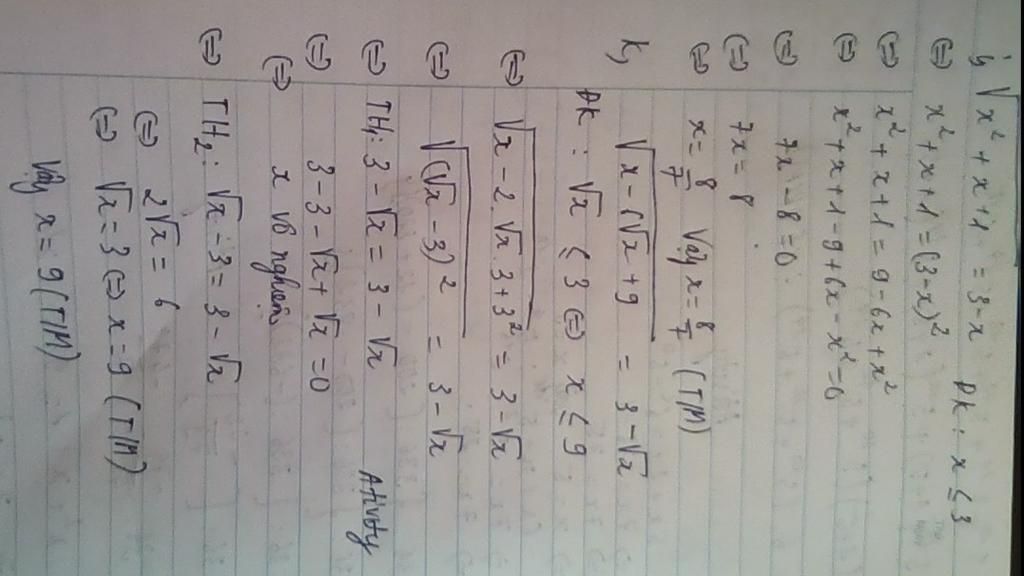 i, √x² + x + 1 = 3 - x ĐK: x ≤ 3
⇔ x² + x + 1 = (3 - x)²
⇔ x² + x + 1 = 9 - 6x + x²
⇔ x² + x + 1 - 9 + 6x - x² = 0
⇔ 7x - 8 = 0
⇔ 7x = 8
⇔ x = 8/7 Vậy x = 8/7 (T/M)
k, √x - 6√x + 9 = 3 - √x
ĐK: √x ≤ 3 ⇔ x ≤ 9
⇔ √x - 2.√x.3 + 3² = 3 - √x
⇔ √(√x - 3)² = 3 - √x
⇔ TH₁: 3 - √x = 3 - √x
⇔ 3 - 3 - √x + √x = 0
⇔ x vô nghiệm
⇔ TH₂: √x - 3 = 3 - √x
⇔ 2√x = 6
⇔ √x = 3 ⇔ x = 9 (T/M)
Vậy x = 9 (T/M)